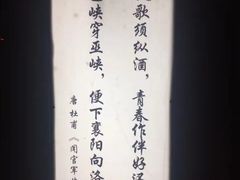 歌须纵酒，青春作伴好
峡穿巫峡，便下襄阳向洛
唐杜甫《闻官军